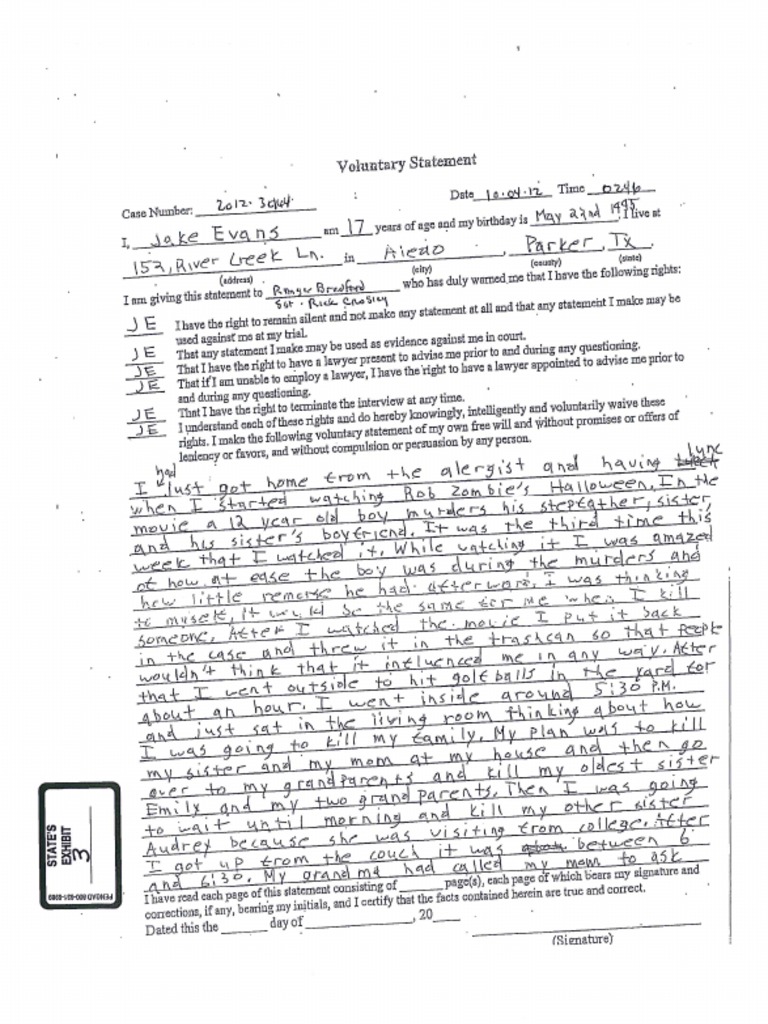 Voluntary Statement
Case Number: 2012-3044 Date 10.04.12 Time 0246
I, Jake Evans am 17 years of age and my birthday is May 22nd 1995. I live at
152, River Creek Ln. in Aledo, Parker, Tx.
(address) (city) (county) (state)
I am giving this statement to Ranger Bradford who has duly warned me that I have the following rights:
Sgt. Rick Crosley
JE I have the right to remain silent and not make any statement at all and that any statement I make may be
used against me at my trial.
JE That any statement I make may be used as evidence against me in court.
JE That I have the right to have a lawyer present to advise me prior to and during any questioning.
JE That if I am unable to employ a lawyer, I have the right to have a lawyer appointed to advise me prior to
and during any questioning.
JE That I have the right to terminate the interview at any time.
JE I understand each of these rights and do hereby knowingly, intelligently and voluntarily waive these
rights. I make the following voluntary statement of my own free will and without promises or offers of
leniency or favors, and without compulsion or persuasion by any person.
I had just got home from the alergist and having lunc
when I started watching Rob Zombie's Halloween. In the
movie a 12 year old boy murders his stepfather, sister,
and his sister's boyfriend. It was the third time this
week that I watched it. While watching it I was amazed
at how at ease the boy was during the murders and
how little remorse he had afterward. I was thinking
to myself, it would be the same for me when I kill
someone. After I watched the movie I put it back
in the case and threw it in the trashcan so that people
wouldn't think that it influenced me in any way. After
that I went outside to hit golf balls in the yard for
about an hour. I went inside around 5:30 P.M.
and just sat in the living room thinking about how
I was going to kill my family. My plan was to kill
my sister and my mom at my house and then go
over to my grandparents and kill my oldest sister
Emily and my two grandparents. Then I was going
to wait until morning and kill my other sister
Audrey because she was visiting from college. After
I got up from the couch it was between 6
and 6:30. My grandma had called my mom to ask
I have read each page of this statement consisting of ______ page(s), each page of which bears my signature and
corrections, if any, bearing my initials, and I certify that the facts contained herein are true and correct.
Dated this the ______ day of ______________, 20____
(Signature)
STATE'S
EXHIBIT
3